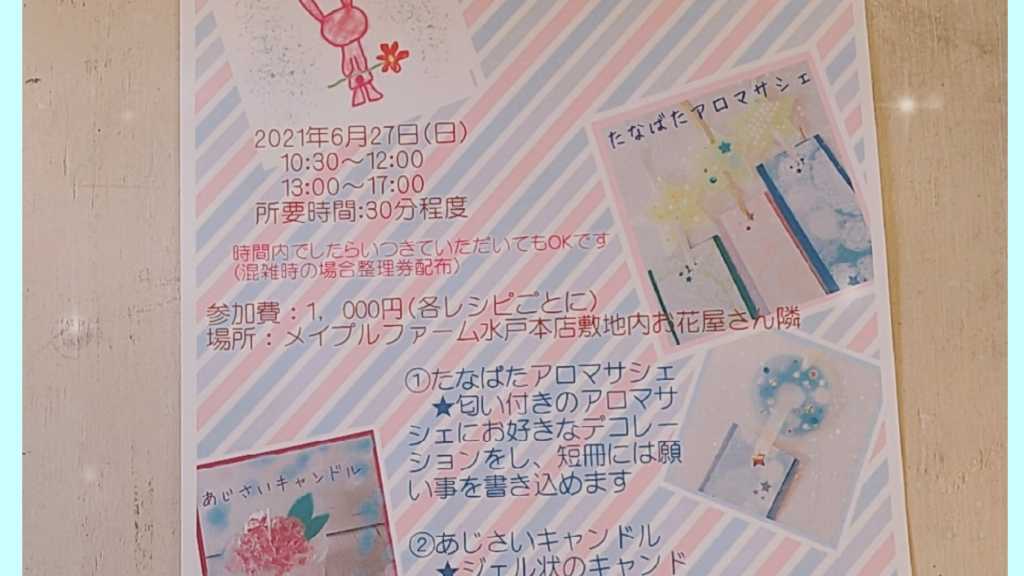 2021年6月27日(日)
10:30～12:00
13:00～17:00
所要時間:30分程度
時間内でしたらいつきていただいてもOKです
(混雑時の場合整理券配布)
参加費：1，000円(各レシピごとに)
場所：メイプルファーム水戸本店敷地内お花屋さん隣
たなばたアロマサシェ
①たなばたアロマサシェ
★匂い付きのアロマサ
シェにお好きなデコレー
ションをし、短冊には願
い事を書き込めます
あじさいキャンドル
②あじさいキャンドル
★ジェル状のキャンド